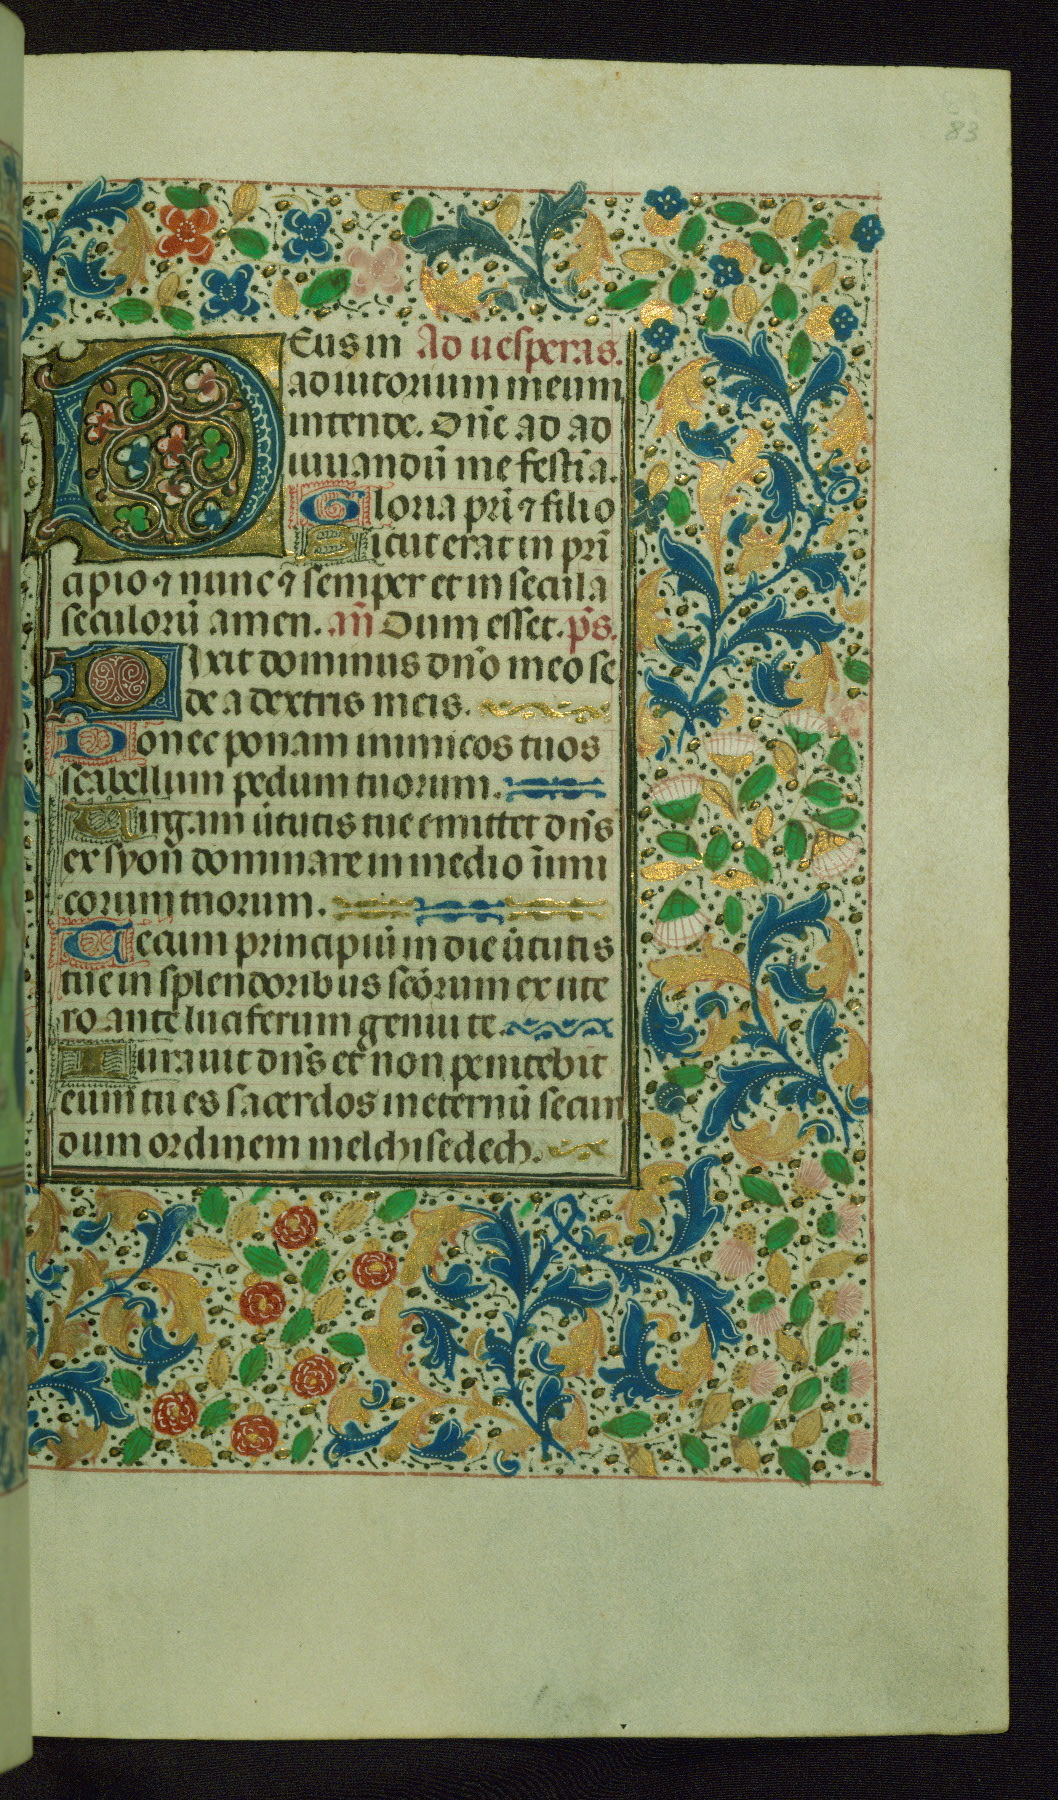 83
Deus in Ad uesperas.
adiutorium meum
intende. Dn̄e ad ad
iuuandū me festi̅a.
Gloria pr̄i ⁊ filio
Sicut erat in pri̅
cipio ⁊ nunc ⁊ semper et in secula
seculorū amen. an̄ Dum esset. p̄s.
Dixit dominus dn̄o meo se
de a dextris meis.
Donec ponam inimicos tuos
scabellum pedum tuorum.
Uirgam ūtutis tue emittet dn̄s
ex syon dominare in medio īimi
corum tuorum.
Tecum principiū in die ūtutis
tue in splendoribus scōrum ex ute
ro ante luciferum genui te.
Iurauit dn̄s et non penitebit
eum tu es sacerdos in eternū secun
dum ordinem melchisedech.